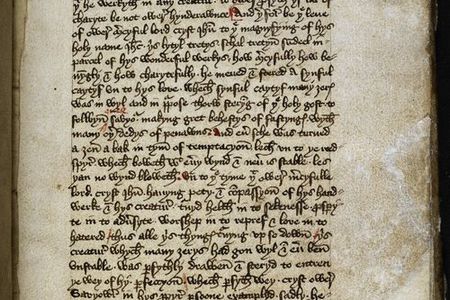 he werkyth in any creatur to ower profyte yf lak of
charyte be not ower hynderawnce. And þerfor be þe leve
of ower mercyful lord cryst Jhu to þe magnyfying of hys
holy name Jhu þis lytyl tretys schal tretyn sumdeel in
parcel of hys wonderful werkys, how mercyfully how be
nyngly & how charytefully he meued & stered a synful
caytyf vn to hys love. whech synful caytyf many ȝerys
was in wyl and in purpose thorw steryng of þe holy gost to
folwyn oure sauyowr making gret behestys of fastyngys wyth
many oþer dedys of penawns. And euyr sche was turned
a ȝen a bak in tym of temptacyon lech vn to þe reed
spyr whech boweth wyth euery wynd & neuyr is stable les
þan no wynd bloweth. vn to þe tyme þat ower mercyfulle
lord. cryst Jhu hauyng pety & compassyon of hys hand
werk & hys creatur turnyd helth in to sekenesse prospery
te in to aduersyte worshep in to repref & love in to
hatered thus alle þis thyngys turnyng vp so down þis
creatur whych many ȝerys had gon wyl & euyr ben
vnstable was parfythly drawen & steryd to entren
þe wey of hy perfeccyon whech parfyth wey cryst ower
Savyowr in hys propyr persoone examplyd. sadly he